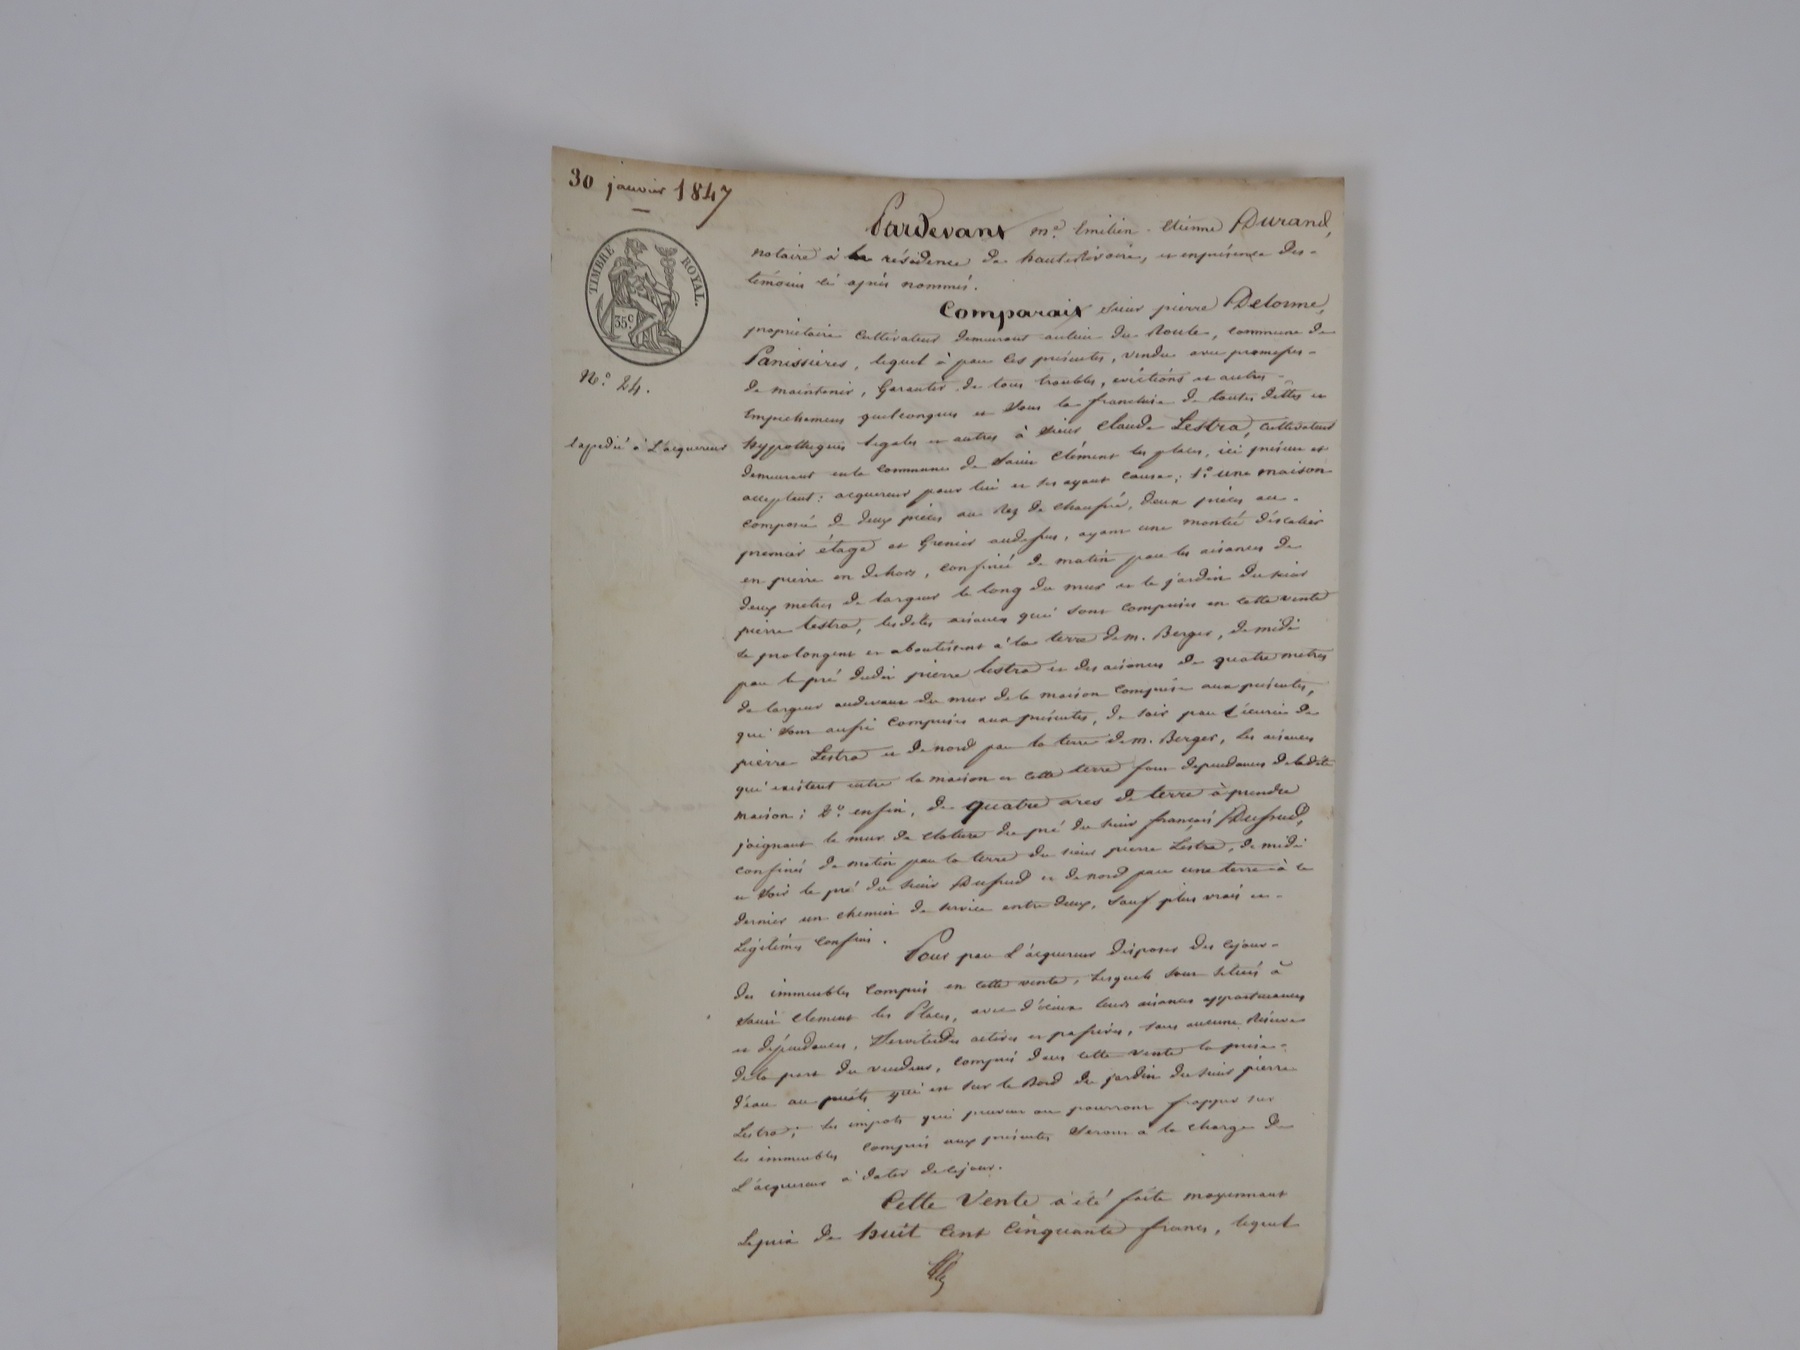 30 janvier 1847
TIMBRE ROYAL.
35 c
N.º 24.
Expédié à L'acquereur
Pardevant m.e Emilien Etienne Durand,
notaire à la résidence de hauterivoire, et en présence des
témoins ci après nommés.
Comparait Sieur pierre Delorme,
propriétaire cultivateur demeurant au lieu du Roule, commune de
Panissières, lequel à par ces présentes, vendu avec promesses
de maintenir, Garantir de tous troubles, evictions et autres
Empechemens quelconques et sous la franchise de toutes dettes et
hypothèques légales et autres à sieur Claude Lestra, cultivateur
demeurant en la commune de Saint Clément les places, ici présent et
acceptant: acquereur pour lui et ses ayant cause; 1.º une maison
composée de deux pièces au Rez de chaussée, deux pièces au
premier étage et Grenier audessus, ayant une montée d'escalier
en pierre en dehors, confinée de matin par les aisances de
deux metres de largeur le long du mur et le jardin du sieur
pierre Lestra, lesdites aisances qui sont comprises en cette vente
se prolongent et aboutissent à la terre de m. Berger, de midi
par le pré dudit pierre Lestra et des aisances de quatre metres
de largeur audevant du mur de la maison comprise aux présentes,
qui sont aussi comprises aux présentes, de soir par l'écurie de
pierre Lestra et de nord par la terre de m. Berger, les aisances
qui existent entre la maison et cette terre sont dépendances de ladite
maison; 2.º enfin, de quatre ares de terre à prendre
joignant le mur de cloture du pré du sieur françois Dufnud,
confinés de matin par la terre du sieur pierre Lestra, de midi
et soir le pré du sieur Dufnud et de nord par une terre à ce
dernier un chemin de service entre deux, sauf plus vrais et
Légitimes confins.
Pour par L'acquereur disposer dès cejour
des immeubles compris en cette vente, lesquels sont situés à
Saint clement les Places, avec leurs aisances appartenances
et dépendances, Servitudes actives et passives, sans aucune Réserve
de la part du vendeur, compris dans cette vente la prise
d'eau au puits qui est sur le Bord du jardin du sieur pierre
Lestra; les impots qui peuvent ou pourront frapper sur
les immeubles compris aux présentes Seront à la charge de
L'acquereur à dater de cejour.
Cette Vente à été faite moyennant
Leprix de huit Cent Cinquante francs, lequel